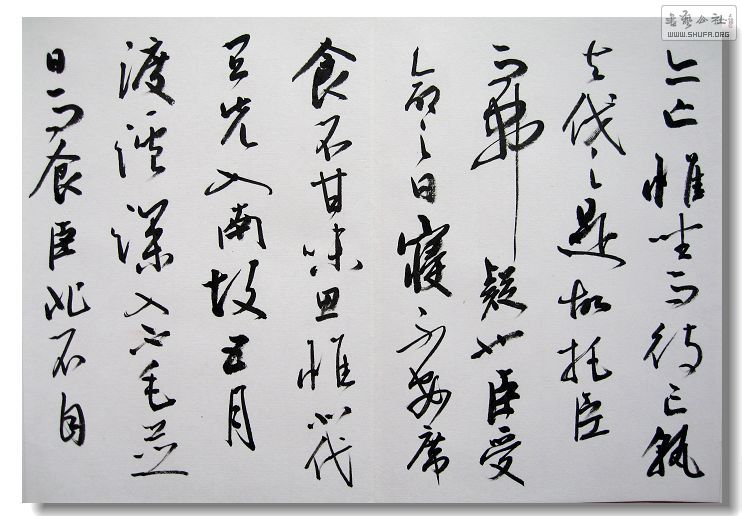 亦亡惟坐而待亡孰
与伐之是故托臣
而弗疑也臣受
命之日寢不安席
食不甘味思惟北伐
宜先入南故五月
渡瀘深入不毛並
日而食臣非不自
書藝公社
WWW.SHUFA.ORG